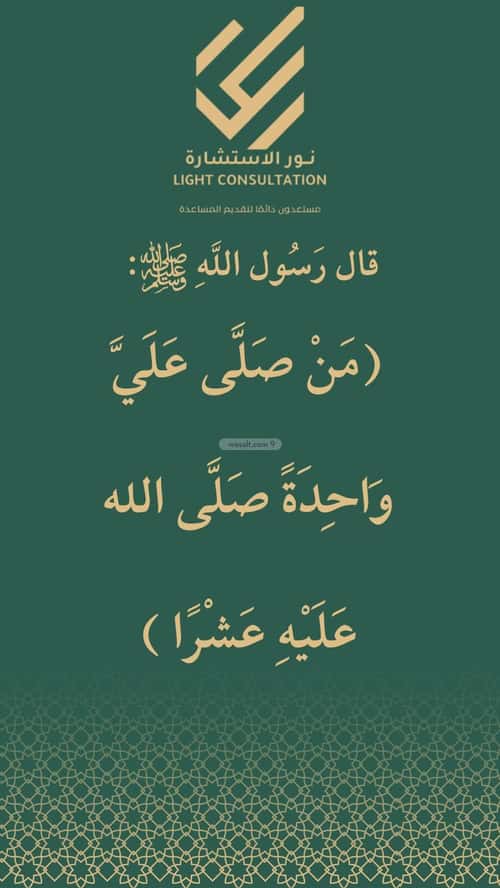 نور الاستشارة
LIGHT CONSULTATION
مستعدون دائمًا لتقديم المساعدة
قال رَسُول اللَّهِ ﷺ:
(مَنْ صَلَّى عَلَيَّ
wosalt.com 9
وَاحِدَةً صَلَّى الله
عَلَيْهِ عَشْرًا )